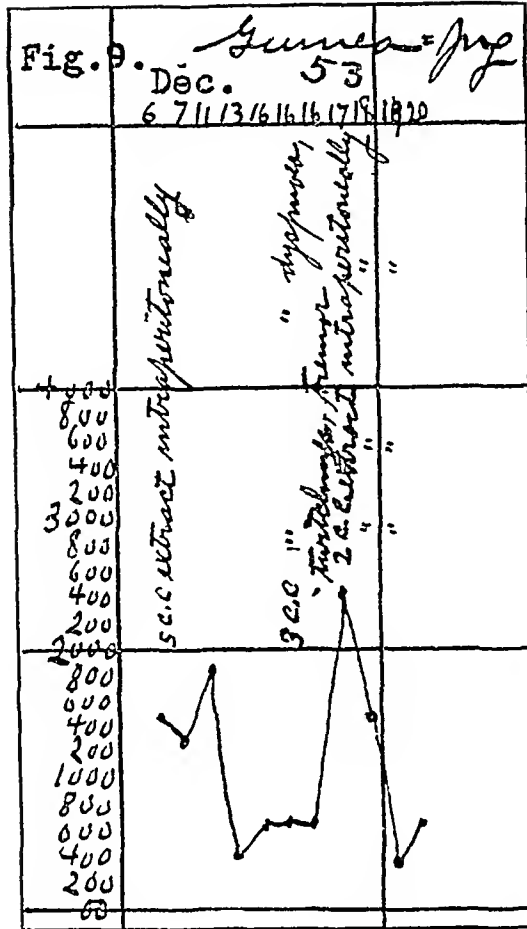 Fig. 9. Guinea=pig
Déc. 53
6 7 11 13 16 16 16 17 18 19 20
5 c.c extract intraperitoneally
3 c.c " " dyspnoea,
twitchings, tremor
2 c.c. extract intraperitoneally
" " "
" " "
4000
800
600
400
200
3000
800
600
400
200
2000
800
600
400
200
1000
800
600
400
200
00